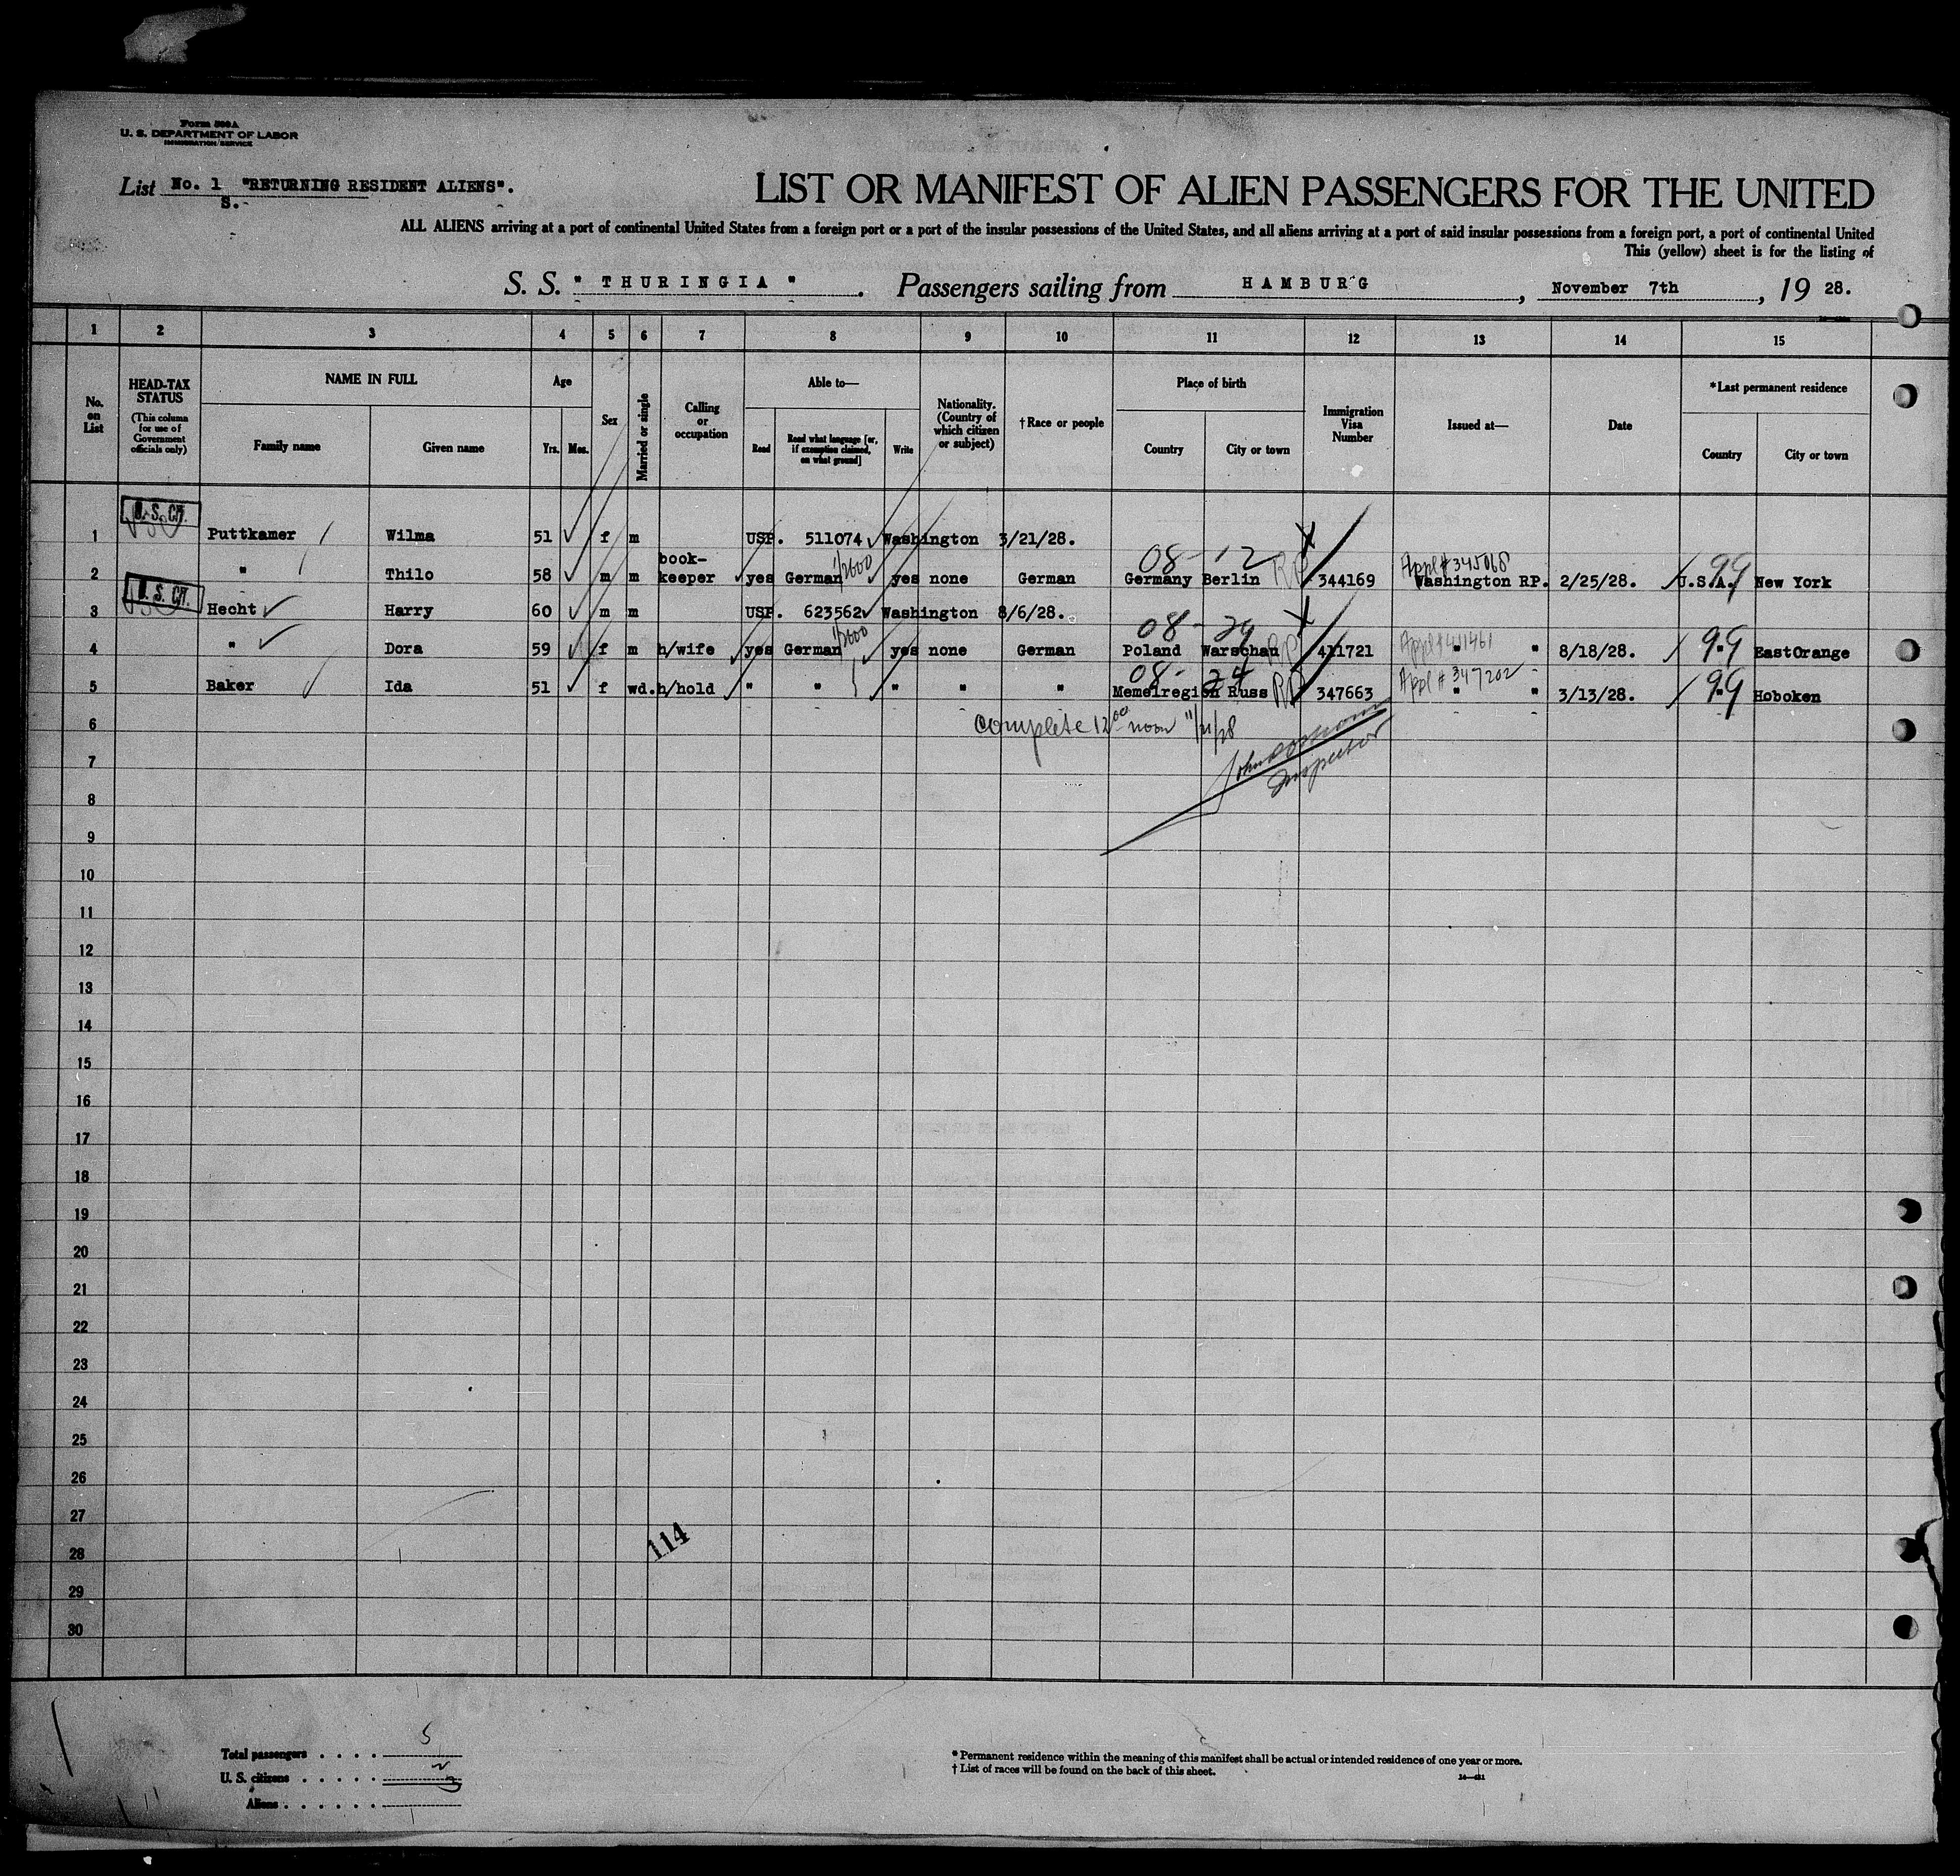 Form 500A
U. S. DEPARTMENT OF LABOR
IMMIGRATION SERVICE
List No. 1 "RETURNING RESIDENT ALIENS".
S.
LIST OR MANIFEST OF ALIEN PASSENGERS FOR THE UNITED
ALL ALIENS arriving at a port of continental United States from a foreign port or a port of the insular possessions of the United States, and all aliens arriving at a port of said insular possessions from a foreign port, a port of continental United
This (yellow) sheet is for the listing of
S. S. "THURINGIA". Passengers sailing from HAMBURG, November 7th, 19 28.
1 2 3 4 5 6 7 8 9 10 11 12 13 14 15
No. on List
HEAD-TAX STATUS (This column for use of Government officials only)
NAME IN FULL
Family name Given name
Age
Yrs. Mos.
Sex
Married or single
Calling or occupation
Able to—
Read Read what language [or, if exemption claimed, on what ground] Write
Nationality. (Country of which citizen or subject)
†Race or people
Place of birth
Country City or town
Immigration Visa Number
Issued at—
Date
*Last permanent residence
Country City or town
U. S. CIT.
1 Puttkamer Wilma 51 f m USP. 511074 Washington 3/21/28.
08- 12 Appl # 345068
2 " Thilo 58 m m book-keeper yes German yes none German Germany Berlin RP 344169 Washington RP. 2/25/28. U.S.A. 99 New York
U. S. CIT.
3 Hecht Harry 60 m m USP. 623562 Washington 8/6/28.
08- 29
4 " Dora 59 f m h/wife yes German yes none German Poland Warschau RP 411721 " " 8/18/28. " 99 EastOrange
08- 24 Appl # 347202
5 Baker Ida 51 f wd. h/hold " " " " " Memelregion Russ RP 347663 " " 3/13/28. " 99 Hoboken
6 Complete 12 00 noon 11/21/28
7 Inspector
8
9
10
11
12
13
14
15
16
17
18
19
20
21
22
23
24
25
26
27
28
29
30
114
Total passengers . . . . 5
U. S. citizens . . . . . 2
Aliens . . . . . . 3
* Permanent residence within the meaning of this manifest shall be actual or intended residence of one year or more.
† List of races will be found on the back of this sheet.